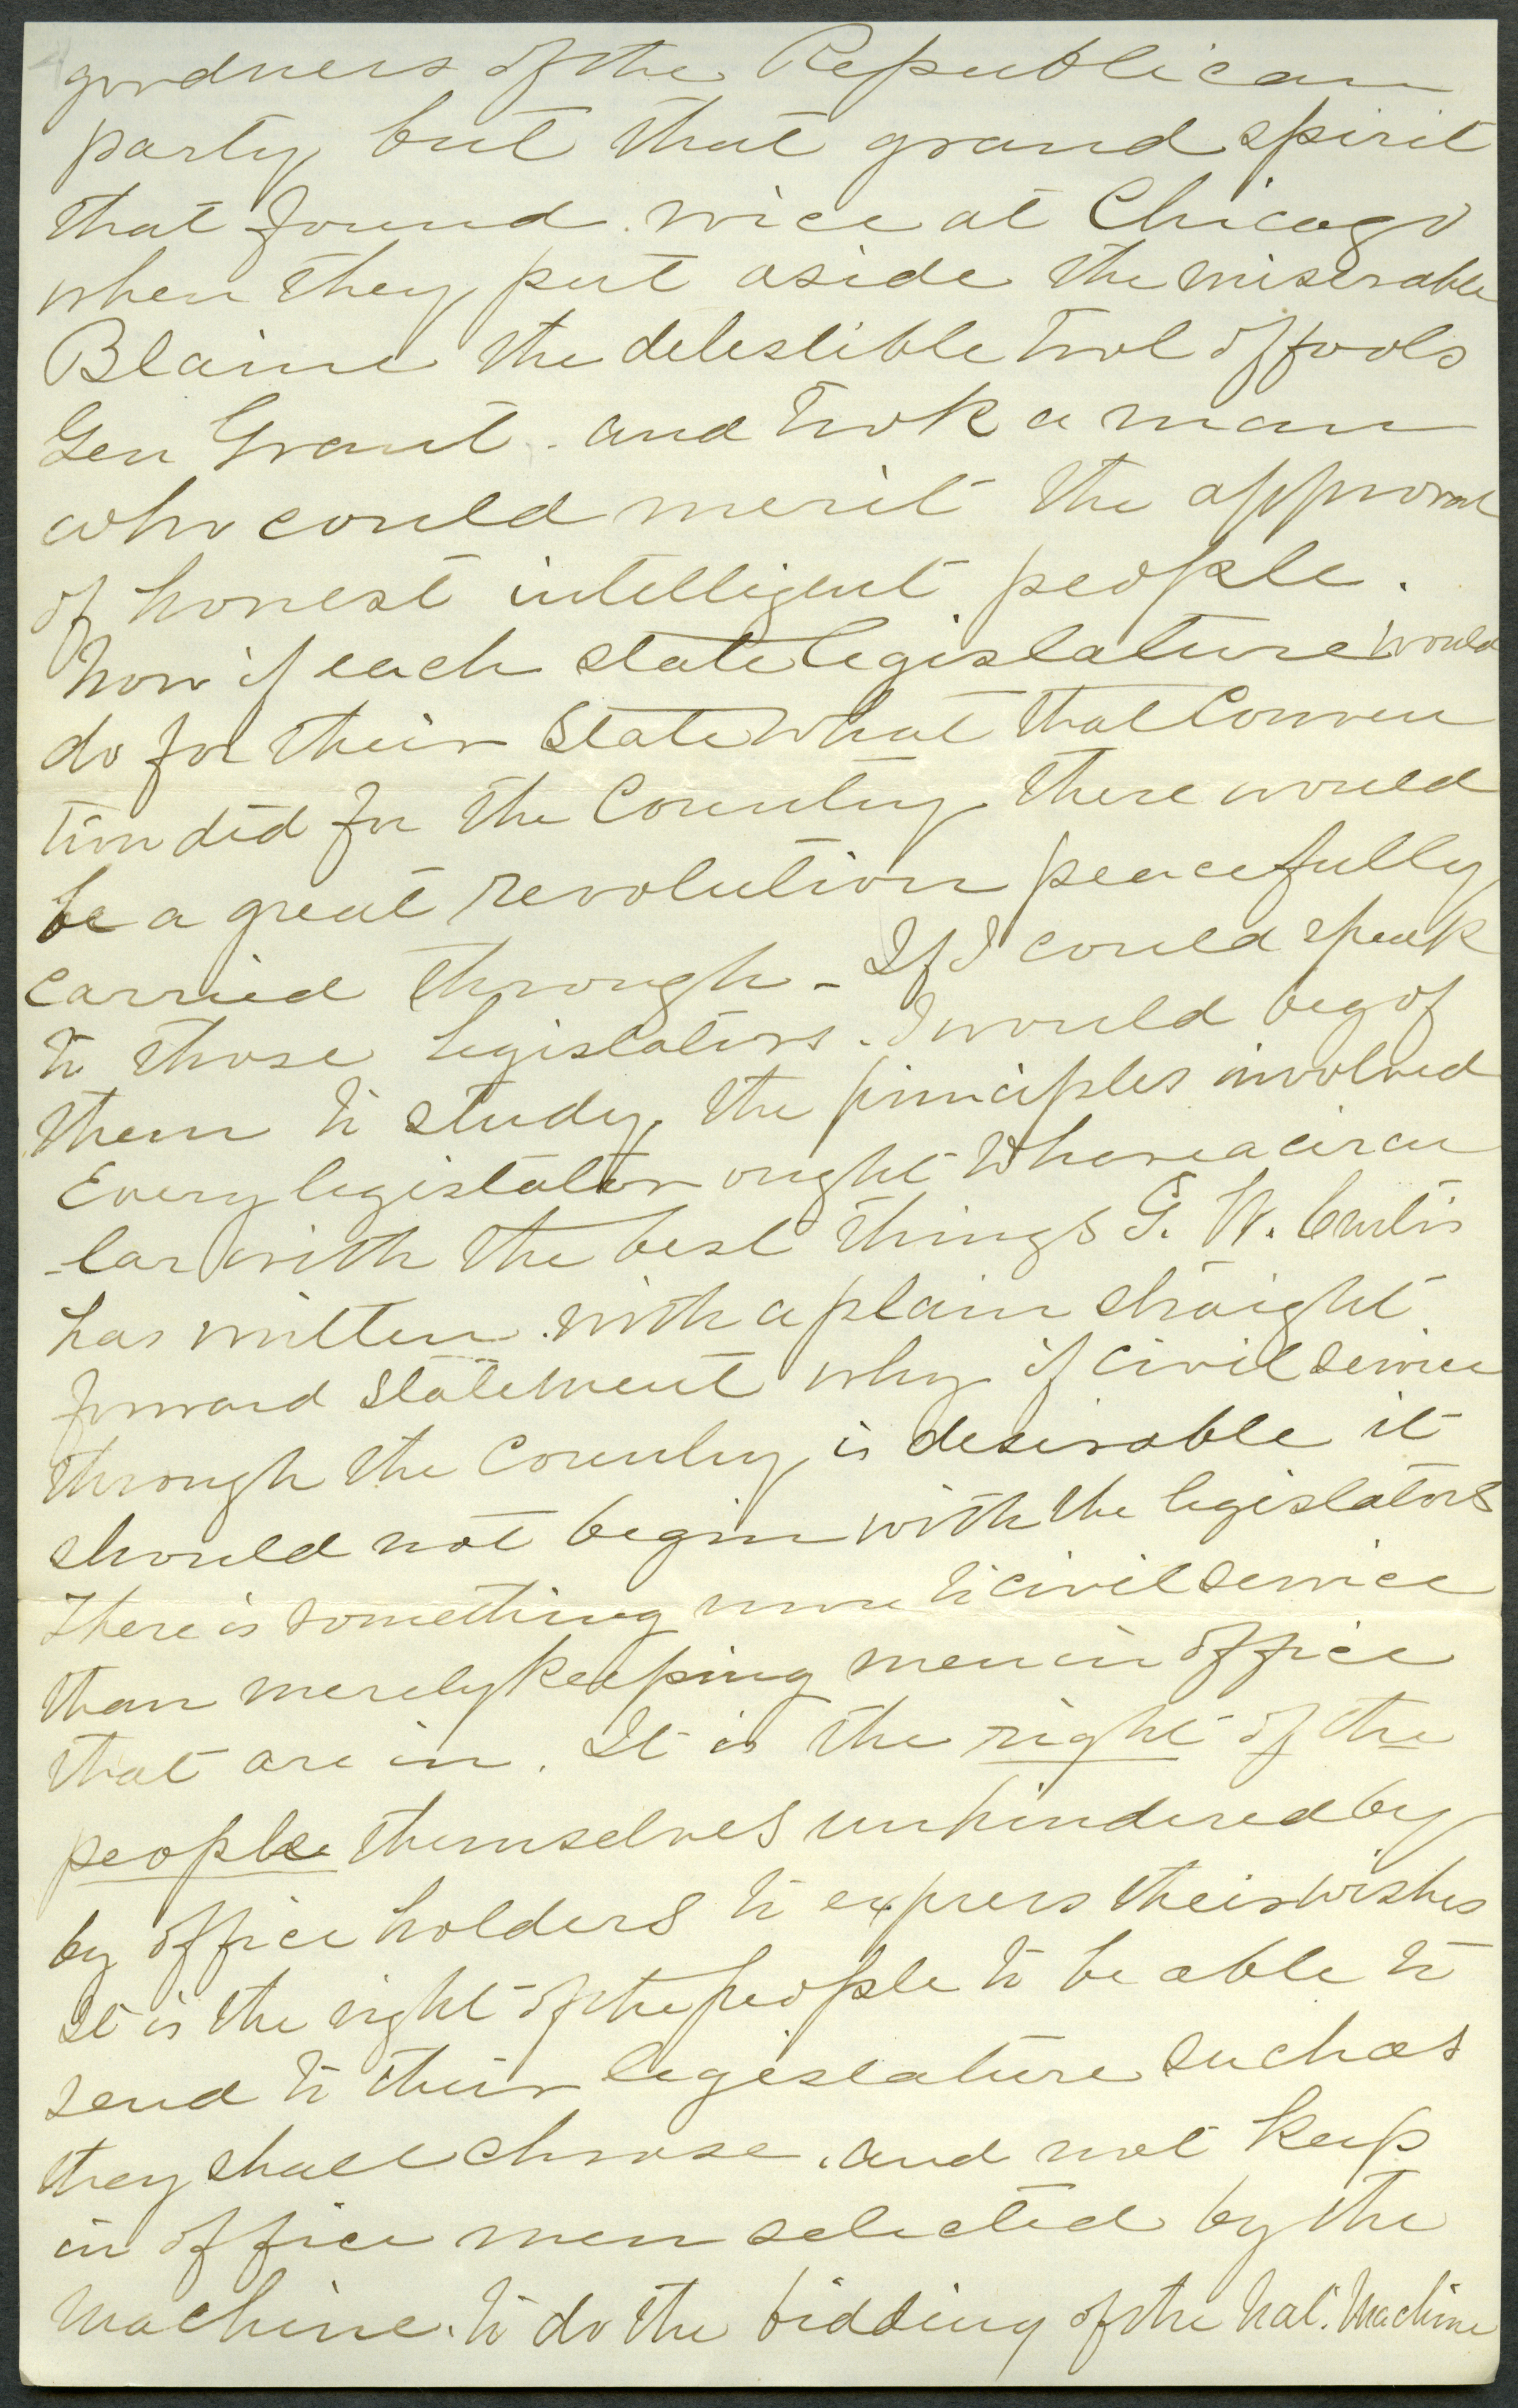 goodness of the Republican
party but that grand spirit
that found voice at Chicago
when they put aside the miserable
Blaine the delestible tool of fools
Gen Grant. and took a man
who could merit the approval
of honest intelligent people.
Now if each state legislature would
do for their State what that Conven
tion did for the Country there would
be a great revolution peacefully
carried through - If I could speak
to those legislators. I would beg of
them to study the principles involved
Every legislator ought to have a circu
-lar with the best things G. W. Curtis
has written. with a plain straight
forward statement why if civil service
through the Country is desirable it
should not begin with the legislators
There is something more to civil service
than merely keeping men in office
that are in. It is the right of the
people themselves unhindered by
by office holders to express their wishes
It is the right of the people to be able to
send to their legislature such as
they shall choose. and not keep
in office men selected by the
machine. to do the bidding of the Nat. Machine